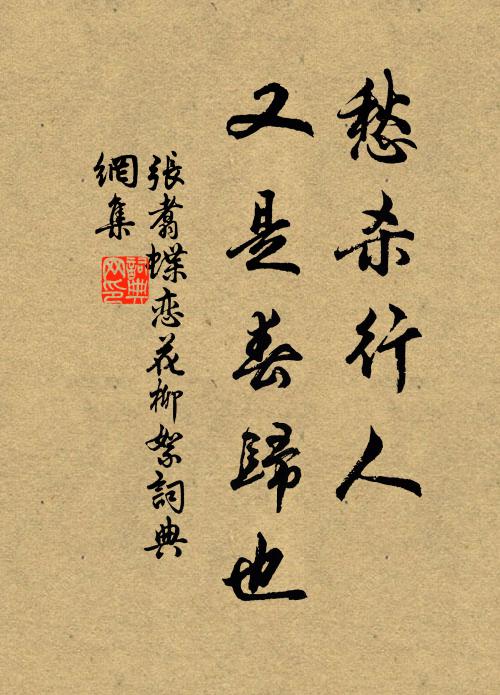 愁杀行人
又是春歸也
張翥蝶恋花柳絮詞典
網集
詞典
网印